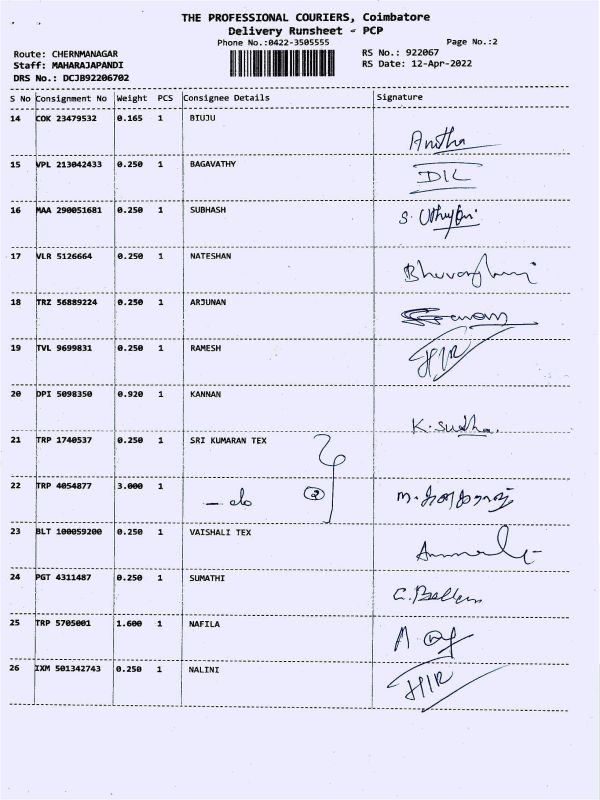 THE PROFESSIONAL COURIERS, Coimbatore
Delivery Runsheet - PCP
Phone No.:0422-3505555 Page No.:2
Route: CHERNMANAGAR RS No.: 922067
Staff: MAHARAJAPANDI RS Date: 12-Apr-2022
DRS No.: DCJB92206702
S No Consignment No Weight PCS Consignee Details Signature
14 COK 23479532 0.165 1 BIUJU Anitha
15 VPL 213042433 0.250 1 BAGAVATHY DIL
16 MAA 290051681 0.250 1 SUBHASH S.
17 VLR 5126664 0.250 1 NATESHAN
18 TRZ 56889224 0.250 1 ARJUNAN
19 TVL 9699831 0.250 1 RAMESH
20 DPI 5098350 0.920 1 KANNAN K. Sudha.
21 TRP 1740537 0.250 1 SRI KUMARAN TEX
22 TRP 4054877 3.000 1 - do 2
23 BLT 100059200 0.250 1 VAISHALI TEX
24 PGT 4311487 0.250 1 SUMATHI
25 TRP 5705001 1.600 1 NAFILA
26 IXM 501342743 0.250 1 NALINI